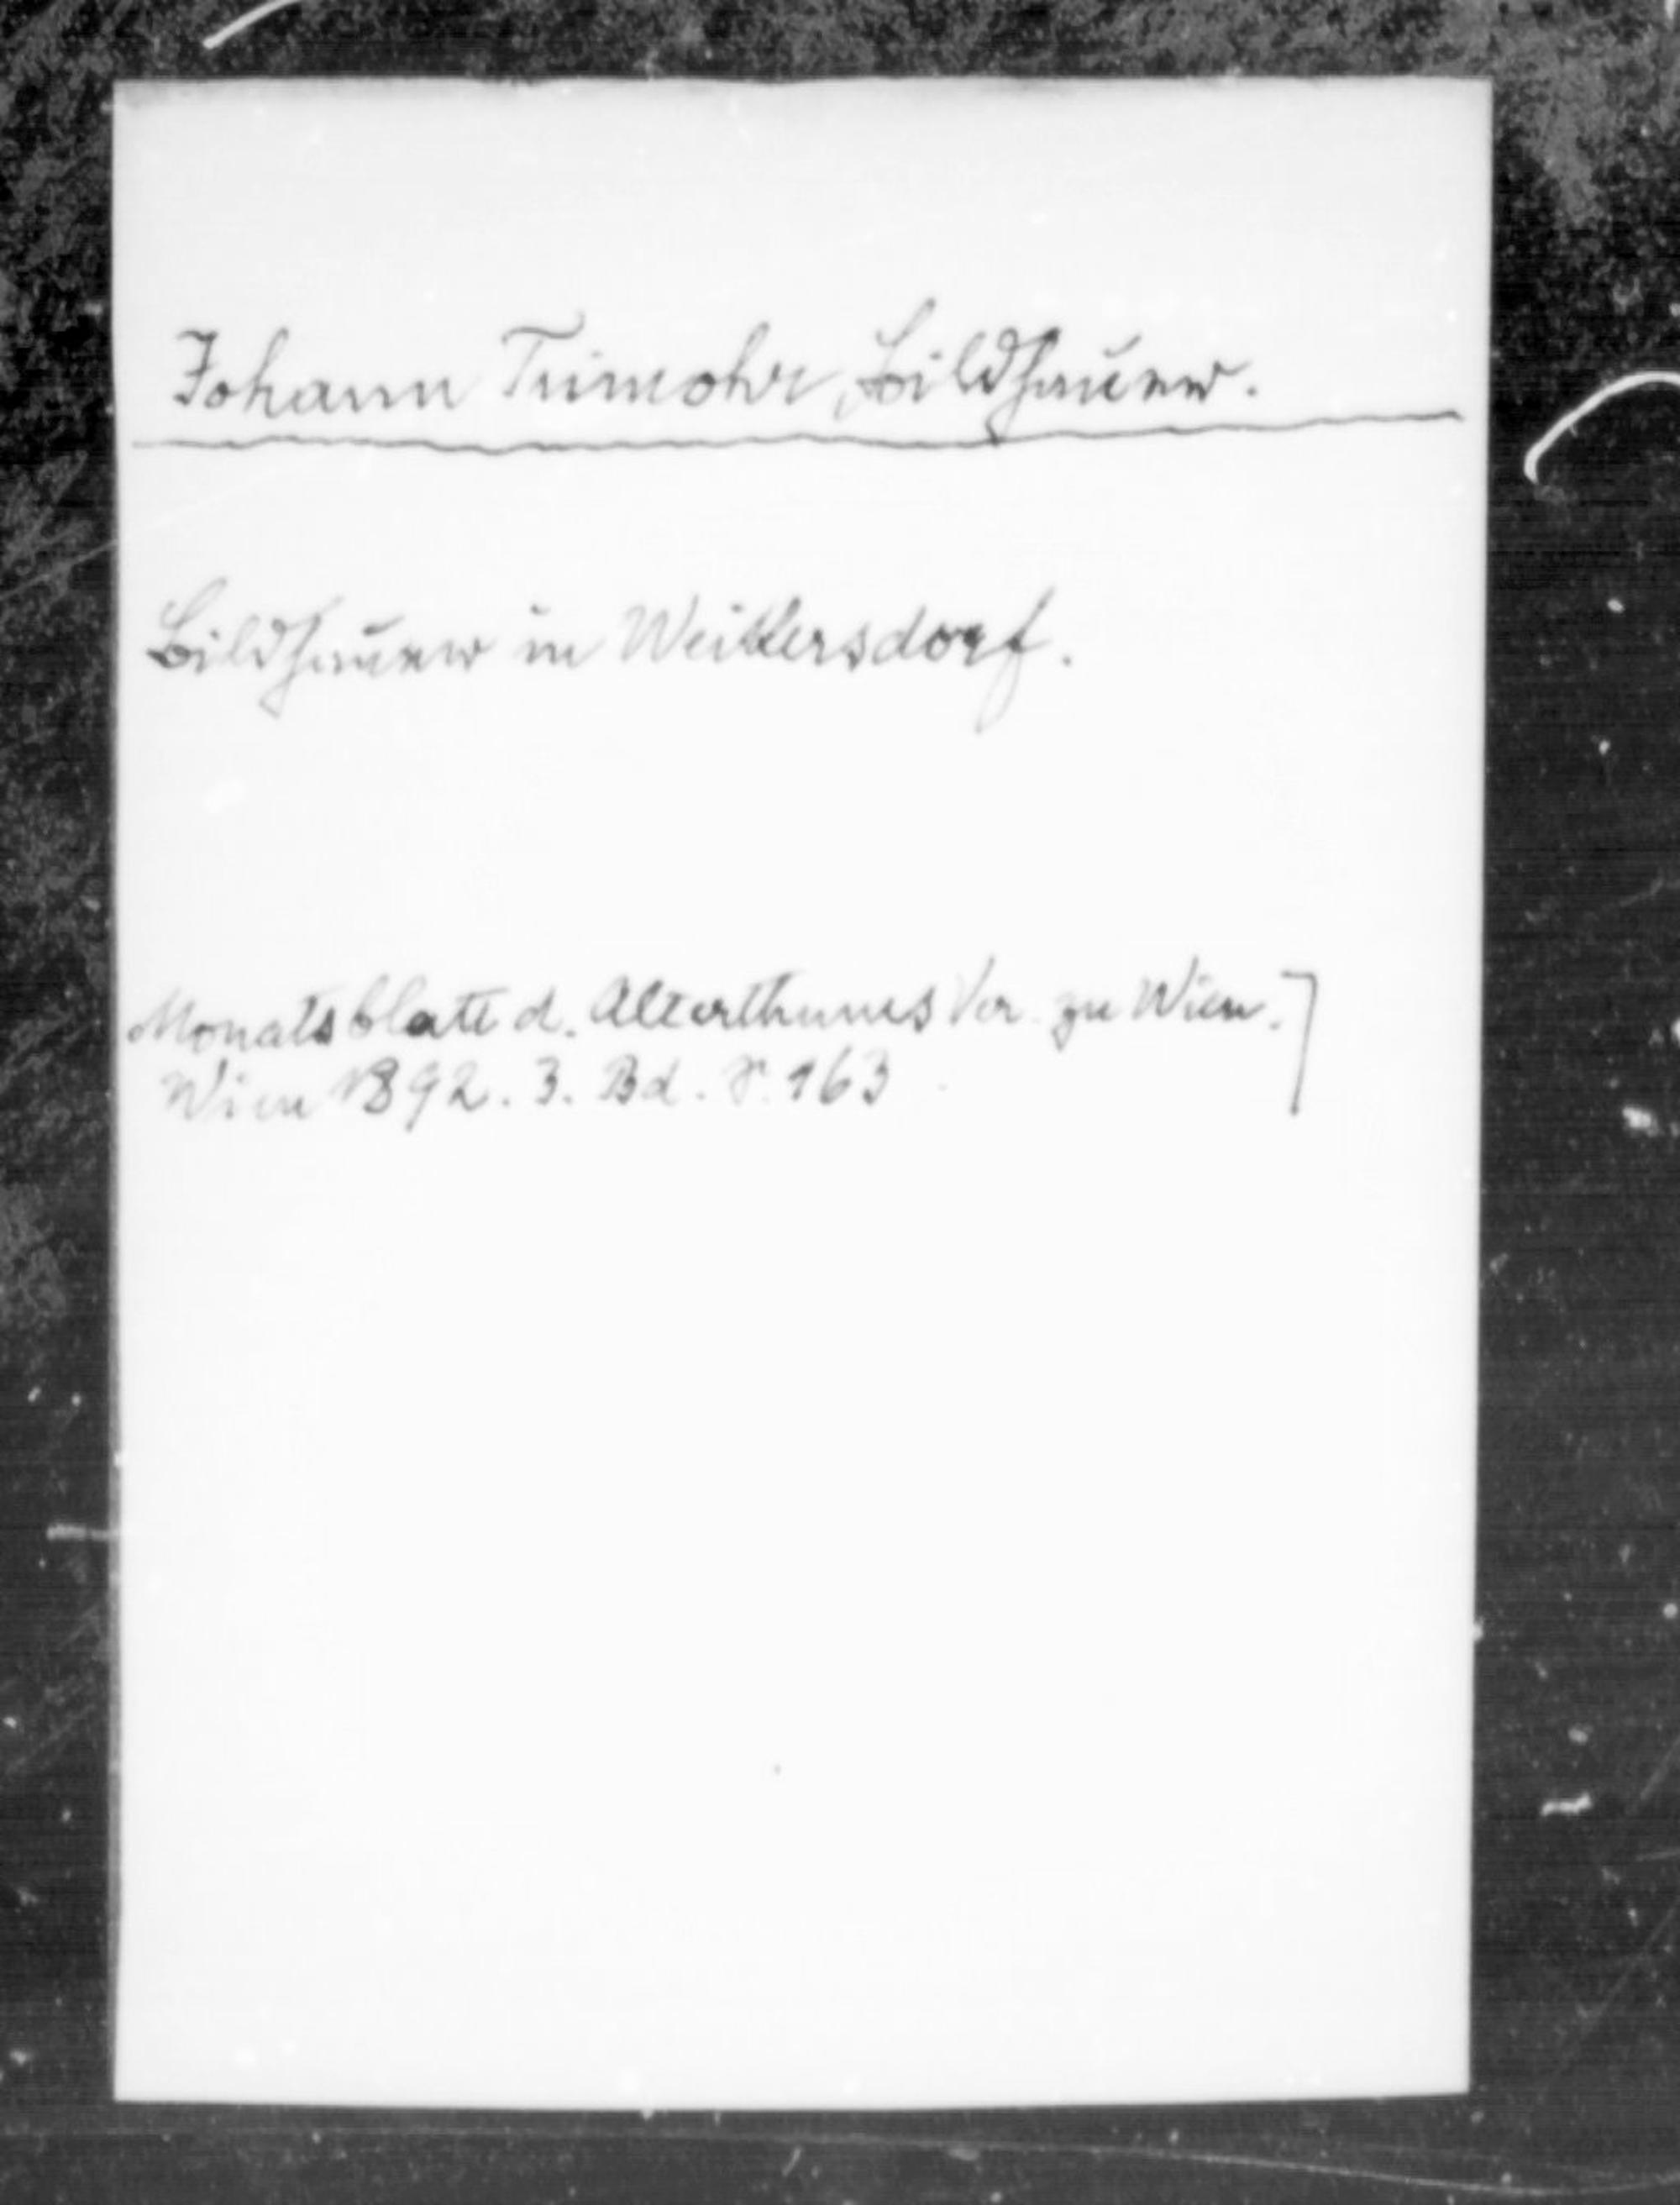 Johann Trimohr, Bildhauer.
Bildhauer in Weikersdorf.
Monatsblatt d. Alterthums Ver. zu Wien.]
Wien 1892. 3. Bd. S. 163